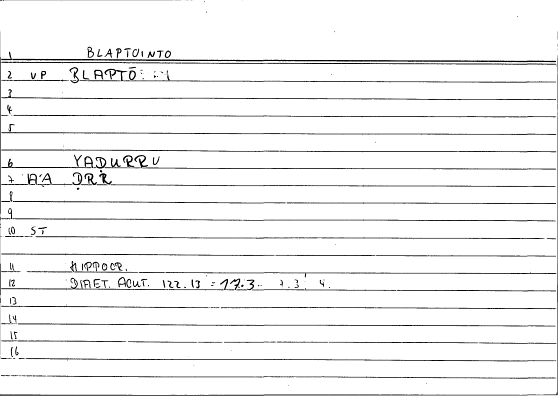 1 BLAPTOINTO
2 VP BLAPTŌ
3
4
5
6 YAḌURRU
7 A'A ḌRR
8
9
10 ST
11 HIPPOCR.
12 DIAET. ACUT. 122.13 = 17.3
13
14
15
16